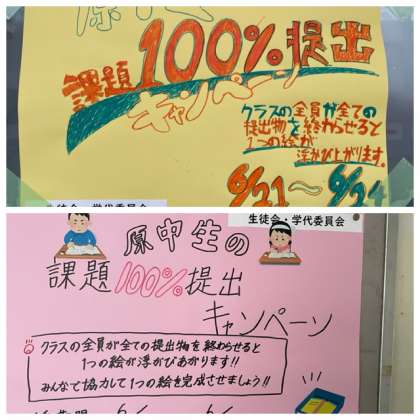 原中生
課題100%提出
キャンペーン
クラスの全員が全ての
提出物を終わらせると
1つの絵が
浮かび上がります。
6/21〜6/24
生徒会・学代委員会
生徒会・学代委員会
原中生の
課題100%提出
キャンペーン
クラスの全員が全ての提出物を終わらせると
1つの絵が浮かびあがります!!
みんなで協力して1つの絵を完成させましょう!!